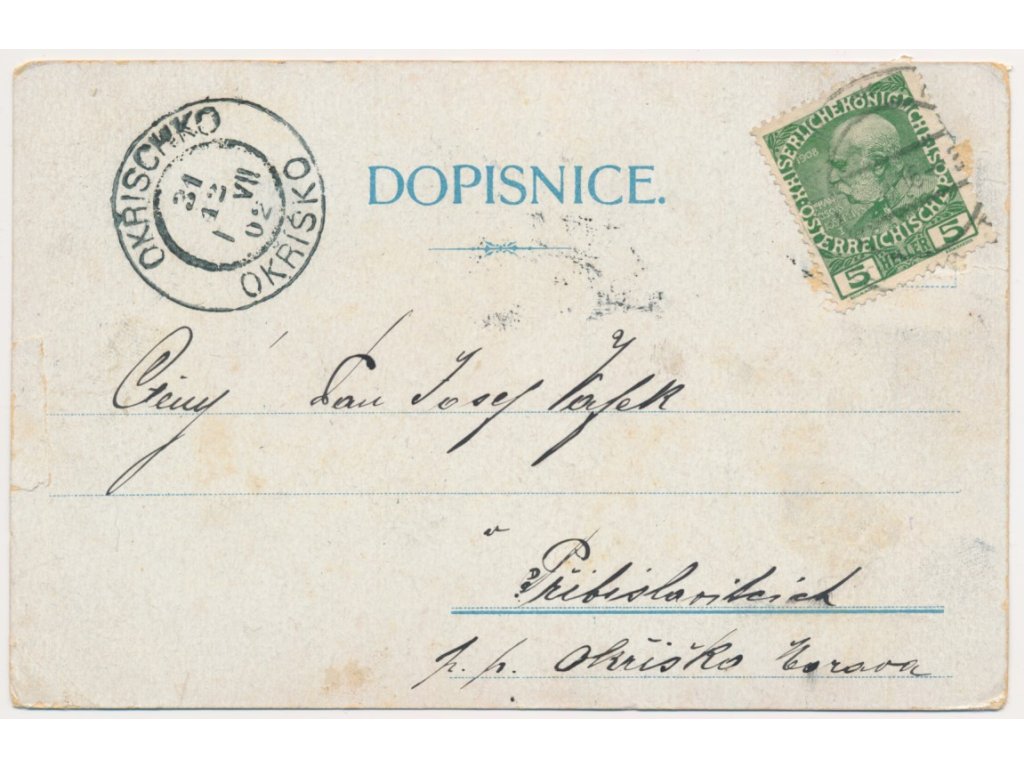 OKŘISCHKO
OKŘÍŠKO
31
12
1 VII
02
DOPISNICE.
KAISERLICHE KÖNIGLICHE ÖSTERREICHISCHE POST
1908
5 HELLER 5
Ctěný Pan Josef Vašek
v
Přibislavicích
p. p. Okříško Morava